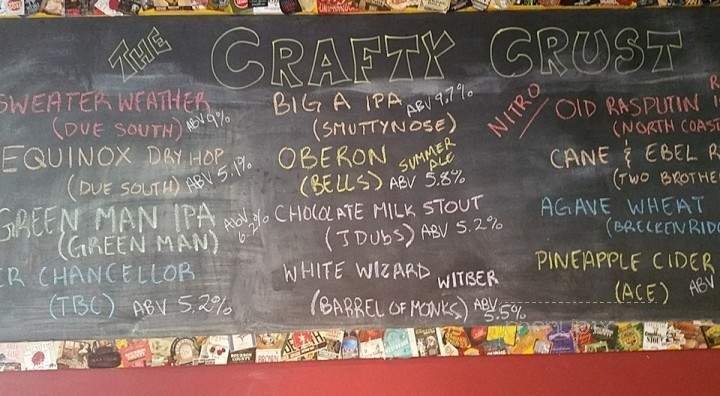 THE CRAFTY CRUST
SWEATER WEATHER
(DUE SOUTH) ABV 9%
EQUINOX DRY HOP
(DUE SOUTH) ABV 5.1%
GREEN MAN IPA
(GREEN MAN) ABV 6.2%
ER CHANCELLOR
(TBC) ABV 5.2%
BIG A IPA ABV 9.7%
(SMUTTYNOSE)
OBERON SUMMER ALE
(BELLS) ABV 5.8%
CHOCOLATE MILK STOUT
(JDUBS) ABV 5.2%
WHITE WIZARD WITBER
(BARREL OF MONKS) ABV 5.5%
NITRO OLD RASPUTIN R
(NORTH COAST
CANE & EBEL R
(TWO BROTHE
AGAVE WHEAT
(BRECKENRIDG
PINEAPPLE CIDER
(ACE) ABV